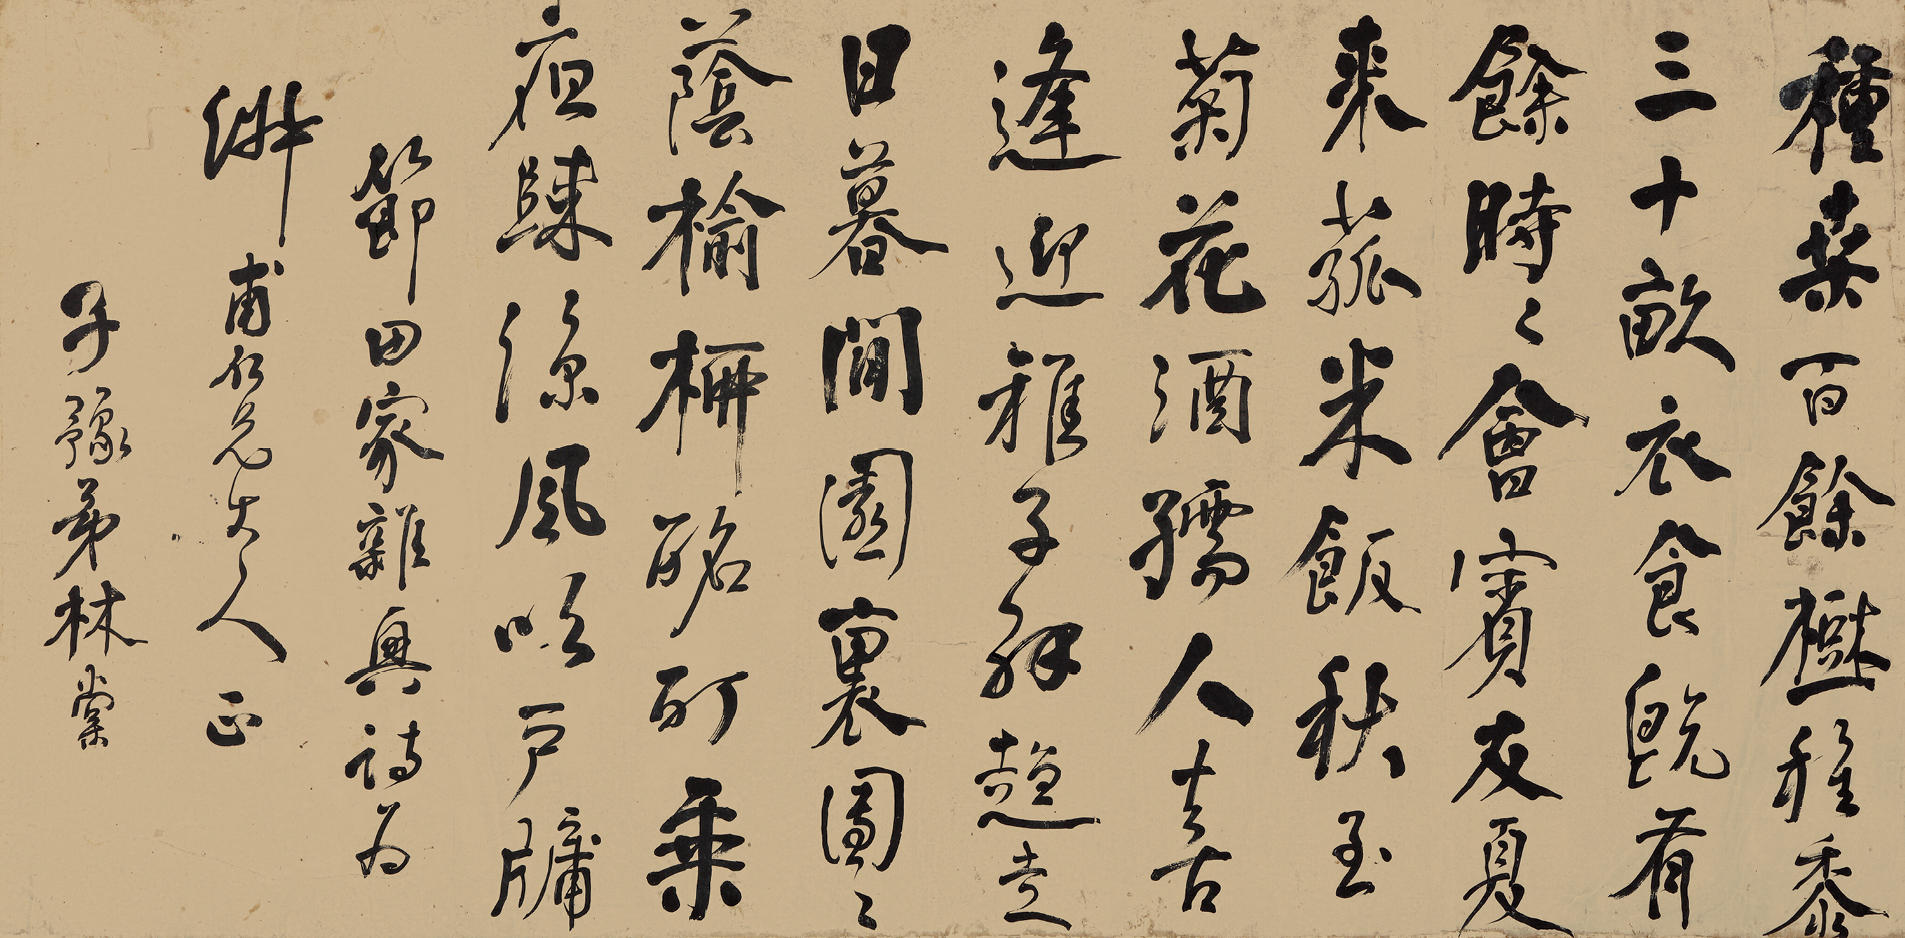 種桑百餘樹種黍
三十畝衣食既有
餘時〻會賓友夏
來菰米飯秋至
菊花酒孺人喜
逢迎稚子解趨走
日暮閒園裏團〻
蔭榆柳酩酊乘
夜歸涼風吹戶牖
節田家雜興詩為
甫仁兄大人正
子豫弟林棨